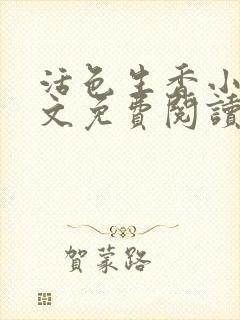 活色生香小
文免費閱讀
賀蒙路